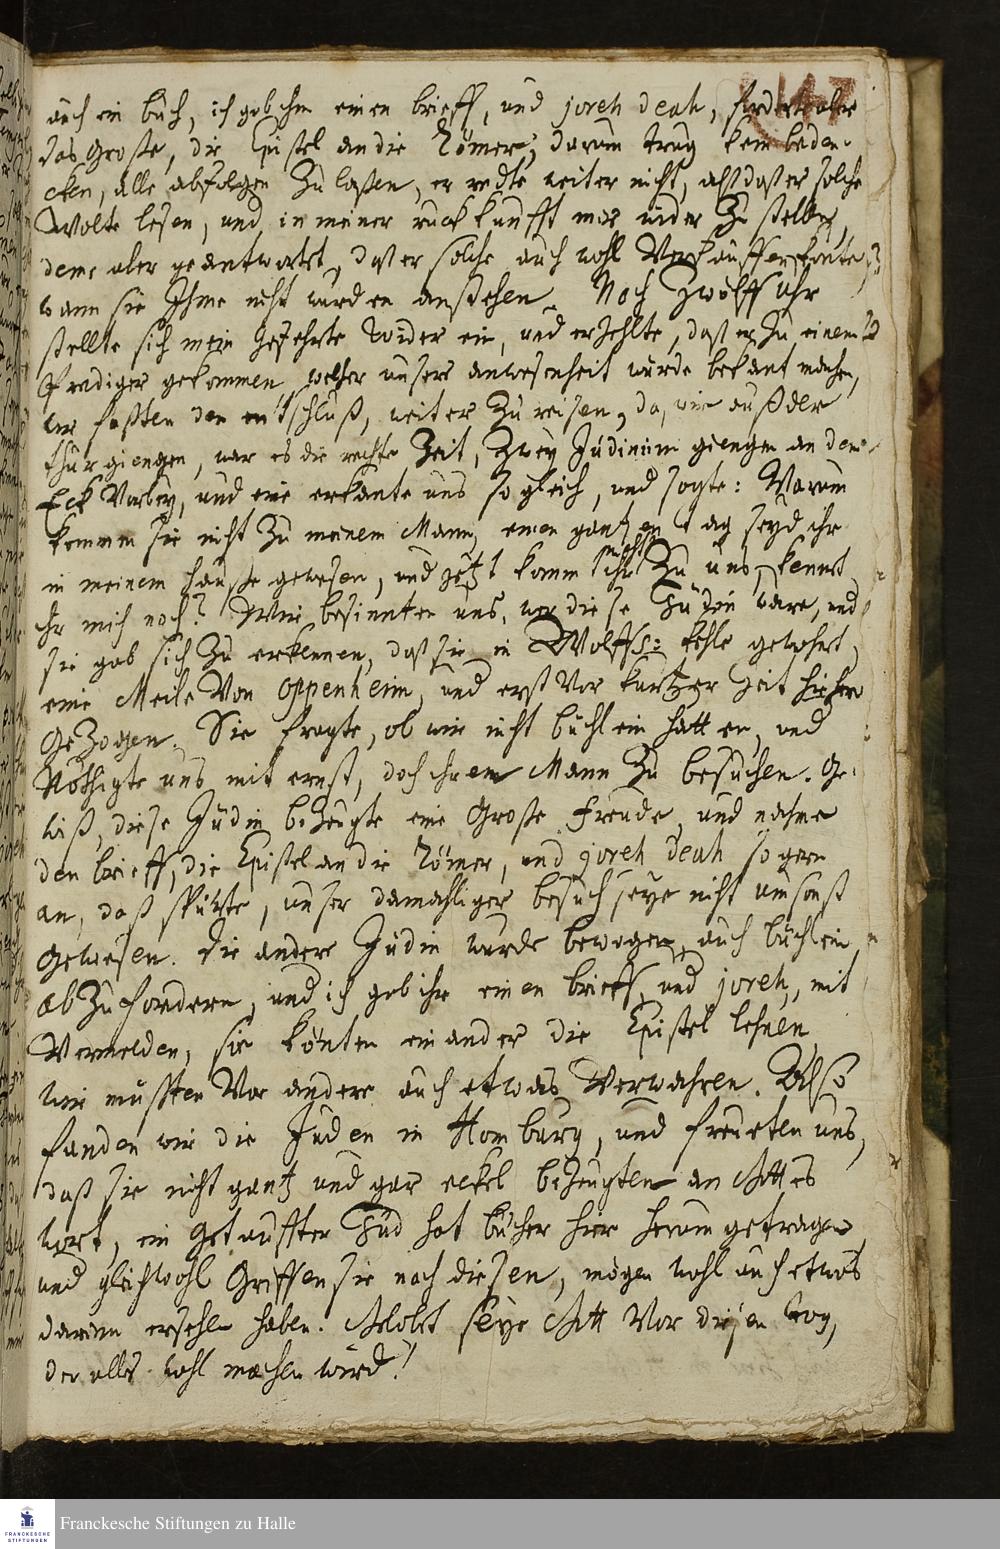 147
auch ein buch, ich gab ihm einen brieff, und joreh deah, forderte aber
das Große, die Epistel an die Römer, darum trug kein beden-
cken, alle abfolgen Zu laßen, er redte weiter nicht, alß daß er solche
Wolte lesen, und in meiner ruckkunfft mir wider Zu stellen,
deme aber geantwortet, daß er solche auch wohl Verkauffen könte,
wann sie Ihme nicht würden anstehen. Nach Zwölff Uhr
stellte sich mein Gefehrte wider ein, und erzehlte, daß er Zu einem
Prediger gekommen, welcher unsere anwesenheit würde bekant machen,
wir faßten den entschluß, weiter Zu reisen, da, wir auß der
thür giengen, war es die rechte Zeit, Zwey Jüdinnen giengen an dem
Eck Vorbey, und eine erkante uns so gleich, und sagte: Warum
kommen sie nicht Zu meinem Mann, einen gantzen tag seyd ihr
in meinem Hauße gewesen, und jetzt komt ihr nicht Zu uns, kennt
ihr mich noch? Wir besinnten uns, wer diese Jüdin ware, und
sie gab sich Zu erkennen, daß sie in Wolffs-kehle gewohnt,
eine Meile Von Oppenheim, und erst Vor kurtzer Zeit hieher
geZogen. Sie fragte, ob wir nicht büchlein hatten, und
Nöthigte uns mit ernst, doch ihren Mann Zu besuchen. Ge-
wiß, diese Jüdin beZeugte eine Große Freude, und nahme
den brieff, die Epistel an die Römer, und joreh deah so gern
an, daß spührte, unser damahliger besuch seye nicht umsonst
gewesen. Die andere Jüdin wurde bewogen, auch büchlein
abZufordern, und ich gab ihr einen brieff, und joreh, mit
Vermelden, sie könten einander die Epistel lehnen,
wir müssten Vor andere auch etwas Verwahren. Also
fanden wir die Juden in Homburg, und freueten uns,
daß sie nicht gantz und gar eckel beZeugten an Gottes
wort, ein getauffter Jud hat bücher hier herum getragen,
und gleichwohl Griffen sie nach diesen, mögen wohl auch etwas
darinn ersehen haben. Gelobet seye Gott Vor diesen tag,
der alles wohl machen wird!
Franckesche Stiftungen zu Halle
FRANCKESCHE
STIFTUNGEN